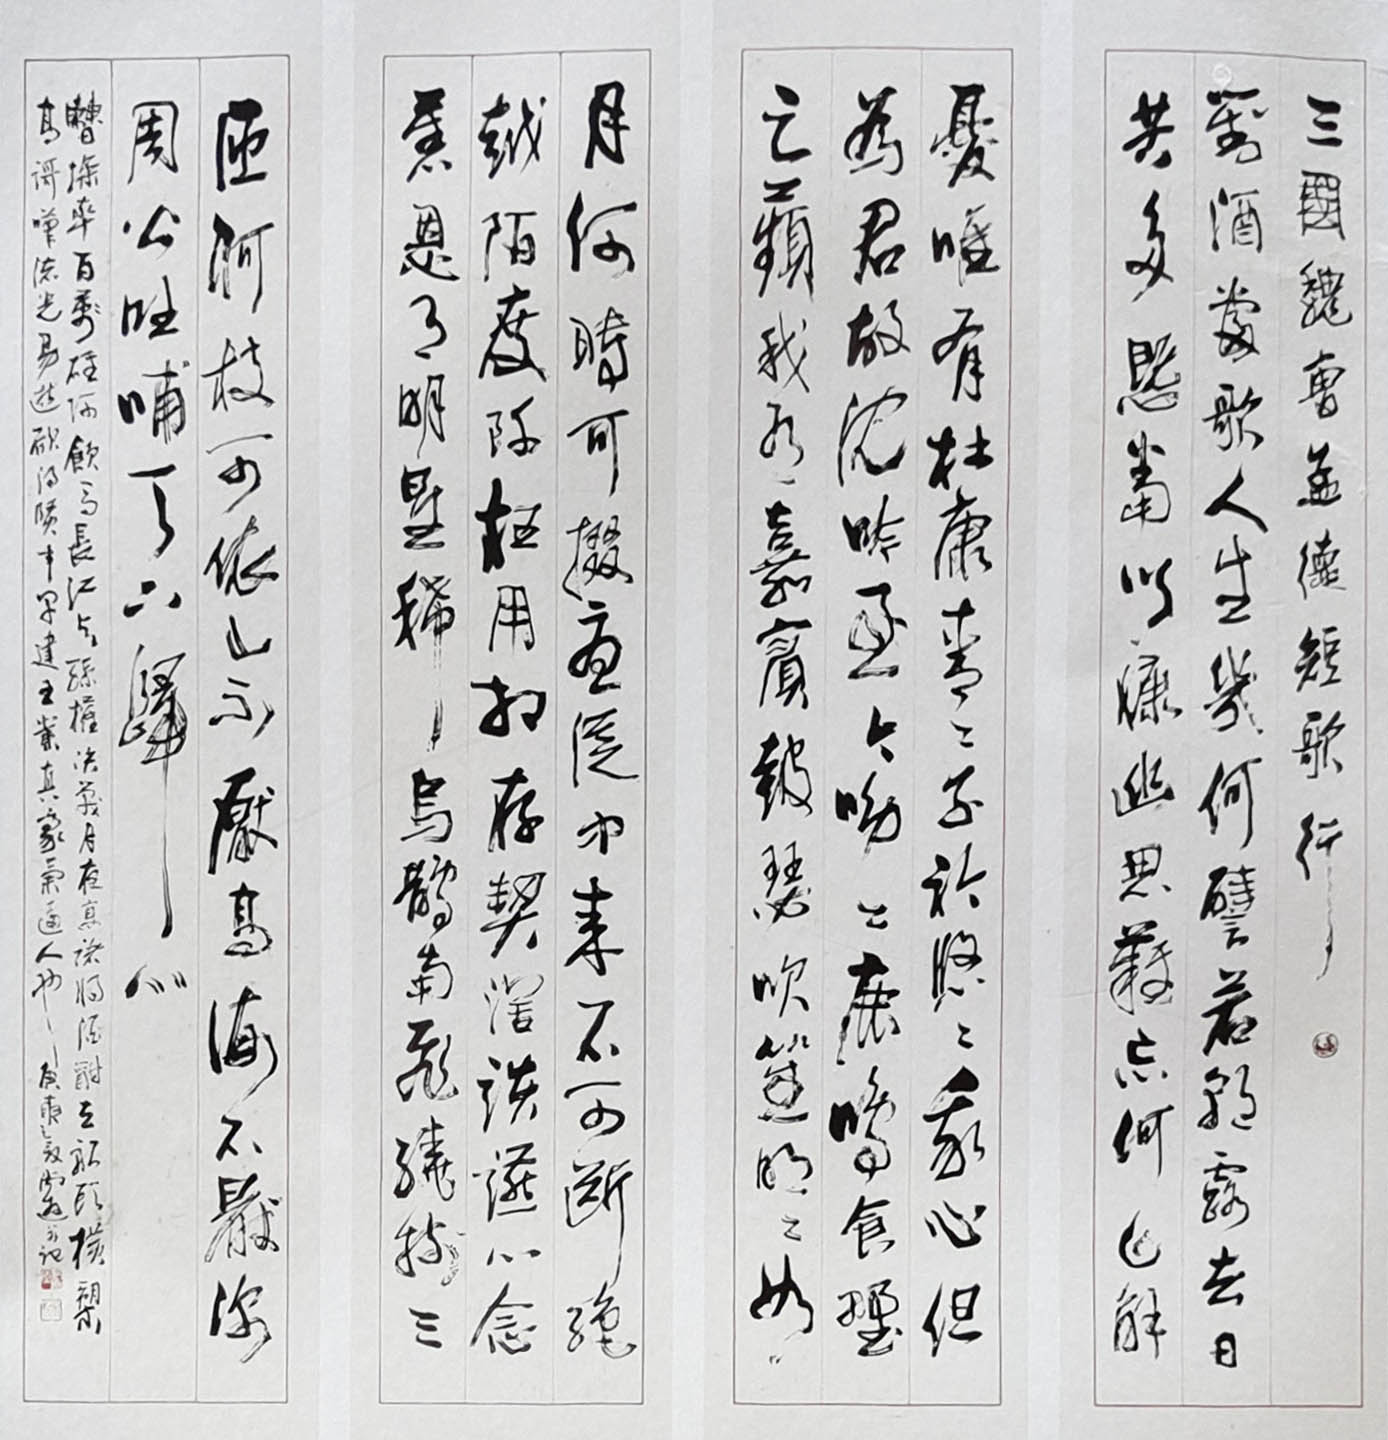 三國魏曹孟德短歌行
對酒當歌人生幾何譬若朝露去日
苦多慨當以慷幽思難忘何以解
憂唯有杜康青〻子衿悠〻我心但
為君故沈吟至今呦〻鹿鳴食野
之蘋我有嘉賓鼓瑟吹笙明〻如
月何時可掇憂從中來不可斷絕
越陌度阡枉用相存契闊談讌心念
舊恩月明星稀烏鵲南飛繞樹三
匝何枝可依山不厭高海不厭深
周公吐哺天下歸心
曹操率百萬雄師飲馬長江與孫權決戰月夜宴諸將酒酣立船頭橫槊
高歌嘆流光易逝欲得賢才早建王業真豪氣逼人也